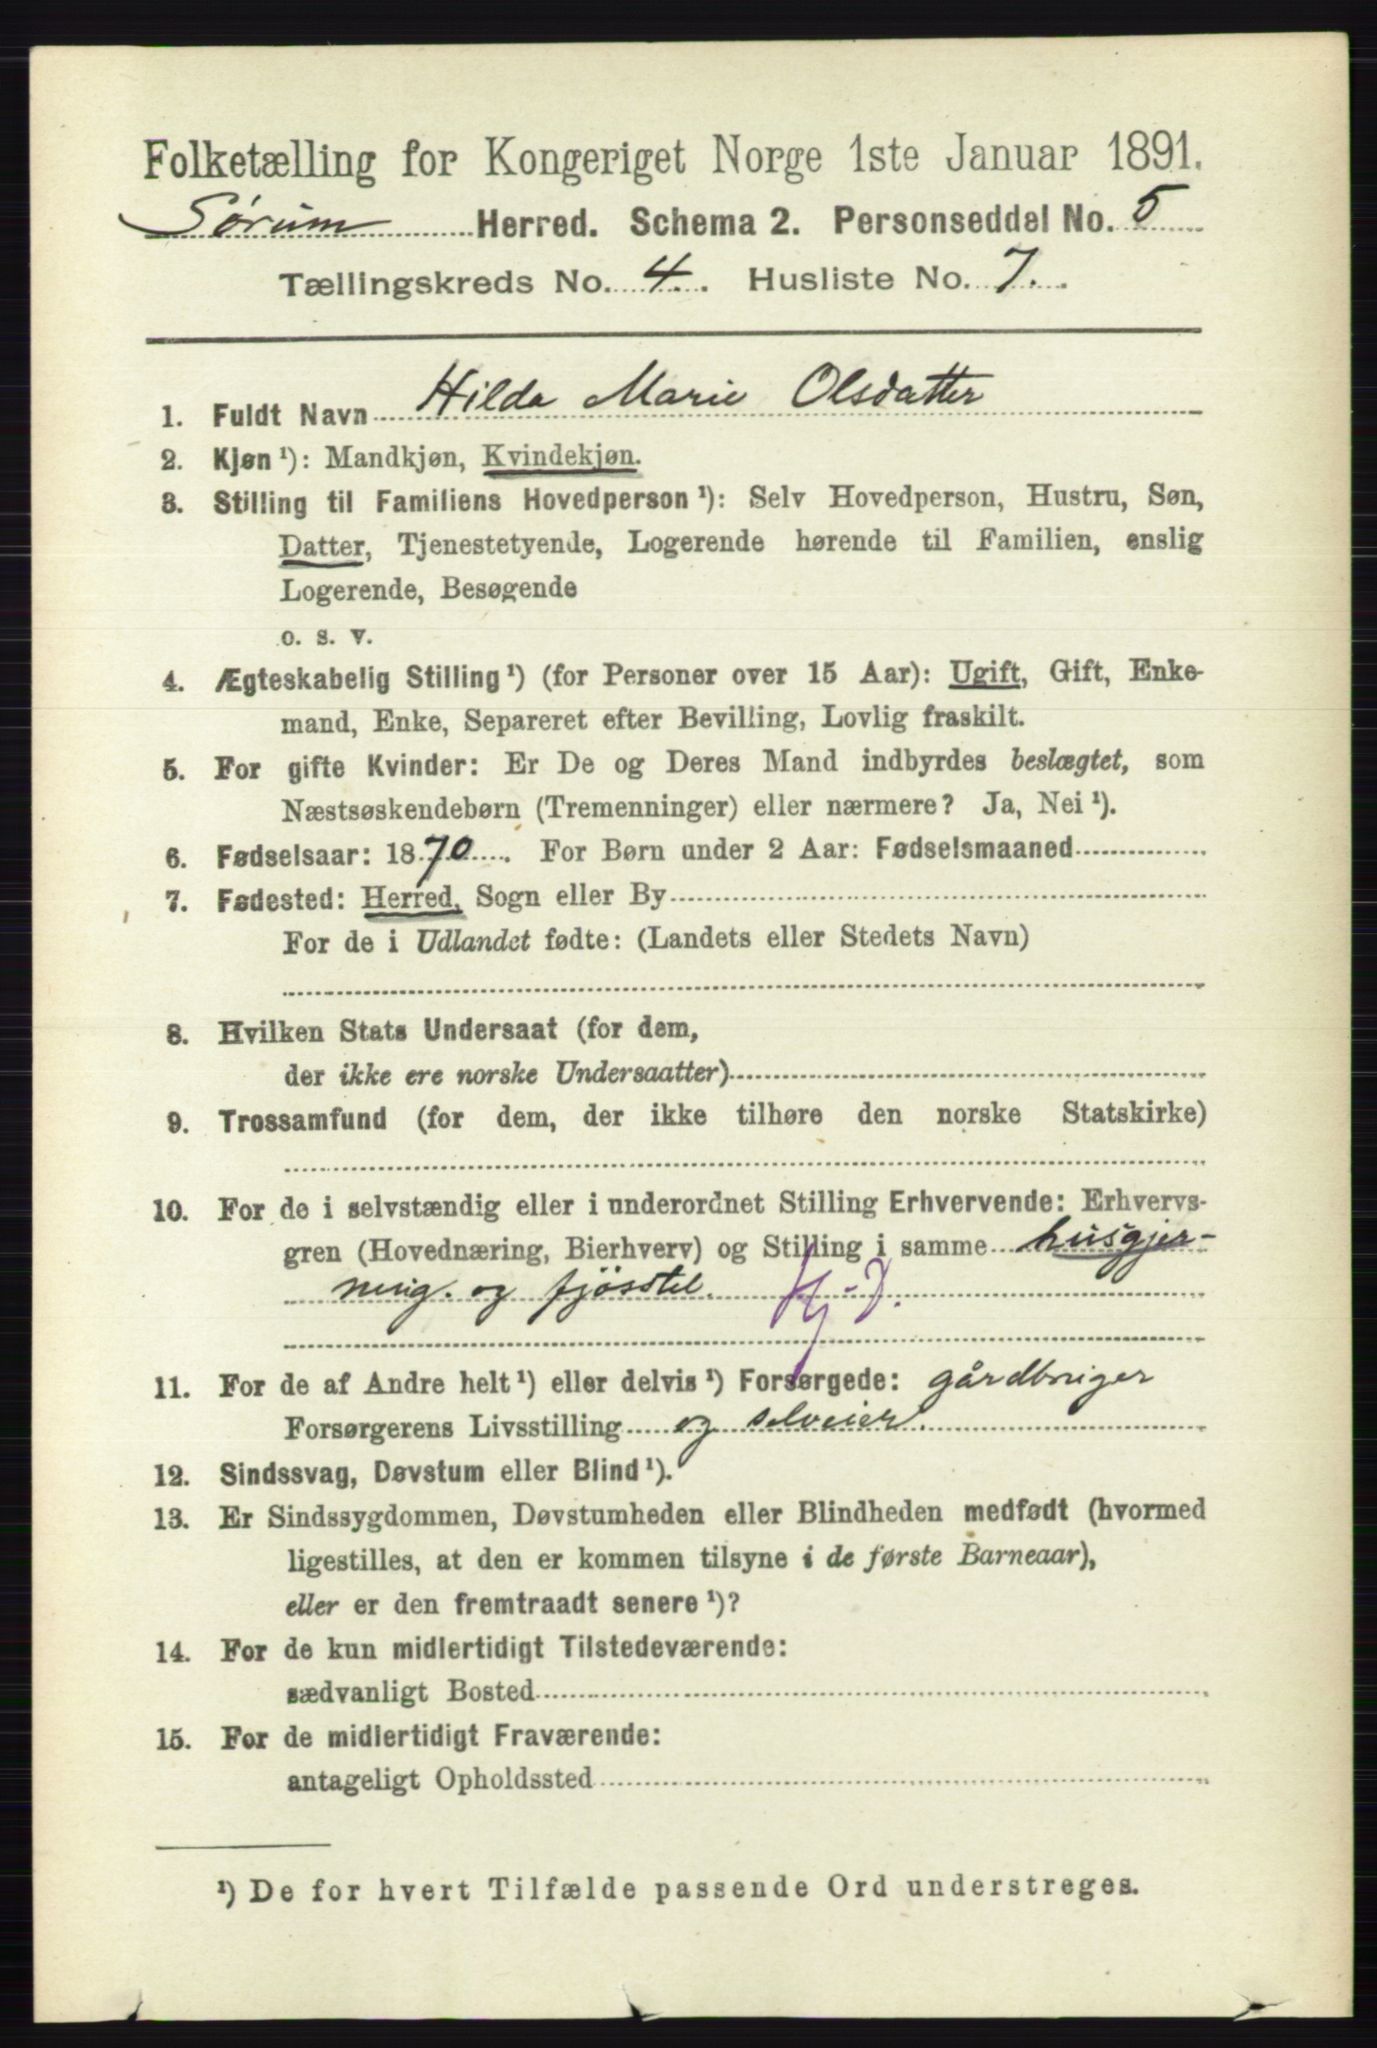 Folketælling for Kongeriget Norge 1ste Januar 1891.
Sørum Herred. Schema 2. Personseddel No. 5
Tællingskreds No. 4. Husliste No. 7.
1. Fuldt Navn Hilda Marie Olsdatter
2. Kjøn ¹): Mandkjøn, Kvindekjøn.
3. Stilling til Familiens Hovedperson ¹): Selv Hovedperson, Hustru, Søn,
Datter, Tjenestetyende, Logerende hørende til Familien, enslig
Logerende, Besøgende
o. s. v.
4. Ægteskabelig Stilling ¹) (for Personer over 15 Aar): Ugift, Gift, Enke-
mand, Enke, Separeret efter Bevilling, Lovlig fraskilt.
5. For gifte Kvinder: Er De og Deres Mand indbyrdes beslægtet, som
Næstsøskendebørn (Tremenninger) eller nærmere? Ja, Nei ¹).
6. Fødselsaar: 1870. For Børn under 2 Aar: Fødselsmaaned
7. Fødested: Herred, Sogn eller By
For de i Udlandet fødte: (Landets eller Stedets Navn)
8. Hvilken Stats Undersaat (for dem,
der ikke ere norske Undersaatter)
9. Trossamfund (for dem, der ikke tilhøre den norske Statskirke)
10. For de i selvstændig eller i underordnet Stilling Erhvervende: Erhvervs-
gren (Hovednæring, Bierhverv) og Stilling i samme husgjer-
ning. og fjøsstel. Hj-D.
11. For de af Andre helt ¹) eller delvis ¹) Forsørgede: gårdbruger
Forsørgerens Livsstilling og selveier.
12. Sindssvag, Døvstum eller Blind ¹).
13. Er Sindssygdommen, Døvstumheden eller Blindheden medfødt (hvormed
ligestilles, at den er kommen tilsyne i de første Barneaar),
eller er den fremtraadt senere ¹)?
14. For de kun midlertidigt Tilstedeværende:
sædvanligt Bosted
15. For de midlertidigt Fraværende:
antageligt Opholdssted
¹) De for hvert Tilfælde passende Ord understreges.